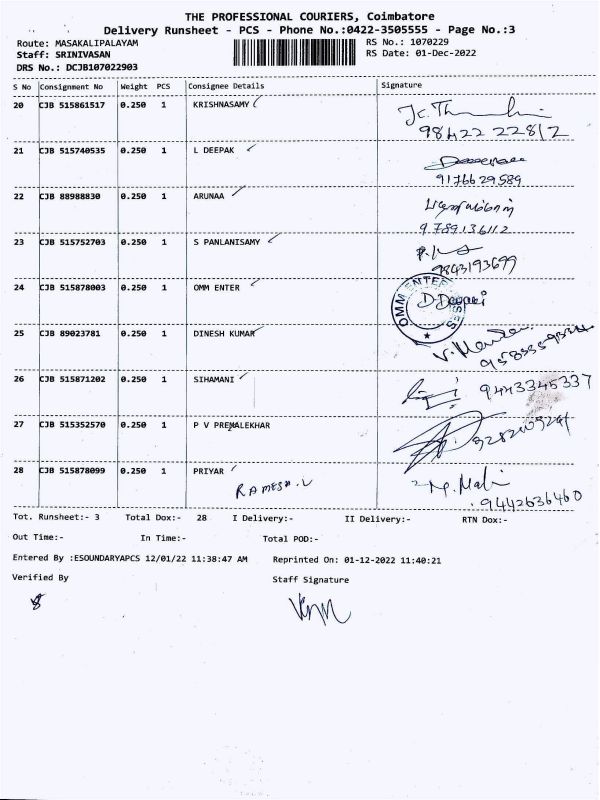 THE PROFESSIONAL COURIERS, Coimbatore
Delivery Runsheet - PCS - Phone No.:0422-3505555 - Page No.:3
Route: MASAKALIPALAYAM RS No.: 1070229
Staff: SRINIVASAN RS Date: 01-Dec-2022
DRS No.: DCJB107022903
S No Consignment No Weight PCS Consignee Details Signature
20 CJB 515861517 0.250 1 KRISHNASAMY
98422 22812
21 CJB 515740535 0.250 1 L DEEPAK
9176629589
22 CJB 88988830 0.250 1 ARUNAA
9789136112
23 CJB 515752703 0.250 1 S PANLANISAMY
9843193699
24 CJB 515878003 0.250 1 OMM ENTER
OMM ENTERPRISES
25 CJB 89023781 0.250 1 DINESH KUMAR
26 CJB 515871202 0.250 1 SIHAMANI
9443345337
27 CJB 515352570 0.250 1 P V PREMALEKHAR
28 CJB 515878099 0.250 1 PRIYAR
RAMESH.V
9442636460
Tot. Runsheet:- 3 Total Dox:- 28 I Delivery:- II Delivery:- RTN Dox:-
Out Time:- In Time:- Total POD:-
Entered By :ESOUNDARYAPCS 12/01/22 11:38:47 AM Reprinted On: 01-12-2022 11:40:21
Verified By Staff Signature